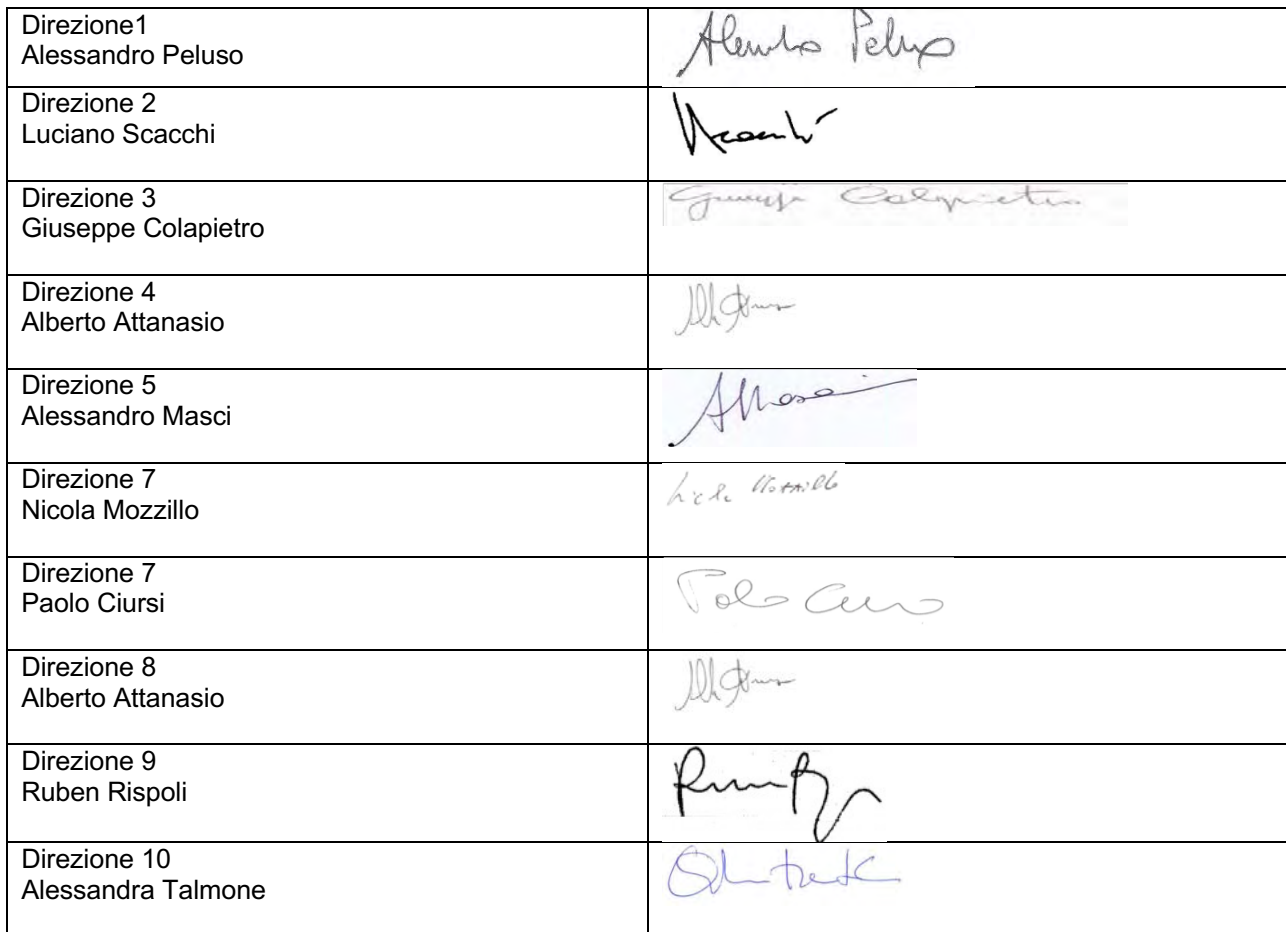 Direzione1
Alessandro Peluso
Direzione 2
Luciano Scacchi
Direzione 3
Giuseppe Colapietro
Giuseppe Colapietro
Direzione 4
Alberto Attanasio
Direzione 5
Alessandro Masci
Direzione 7
Nicola Mozzillo
Nicola Mozzillo
Direzione 7
Paolo Ciursi
Direzione 8
Alberto Attanasio
Direzione 9
Ruben Rispoli
Direzione 10
Alessandra Talmone